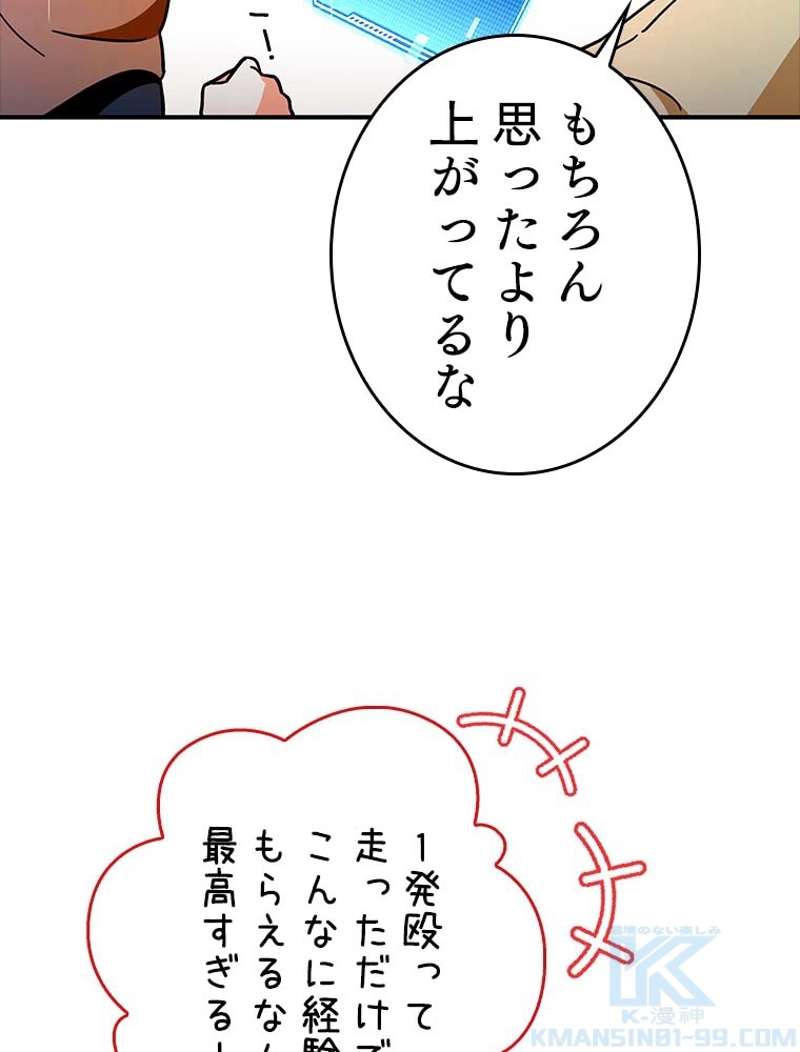 もちろん
思ったより
上がってるな
1発殴って
走っただけで
こんなに経験
もらえるなん
最高すぎる
環境のない楽しみ
K
K-漫神
KMANSIN01-99.COM